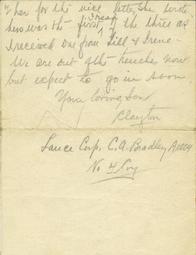 her for the nice letter she
hers was the first I read of the three as
I received one from Will & Irene -
We are out of the trenches now
but expect to go in soon
Your loving son
Clayton
Lance Corp. C. A. Bradley
No 4 Coy